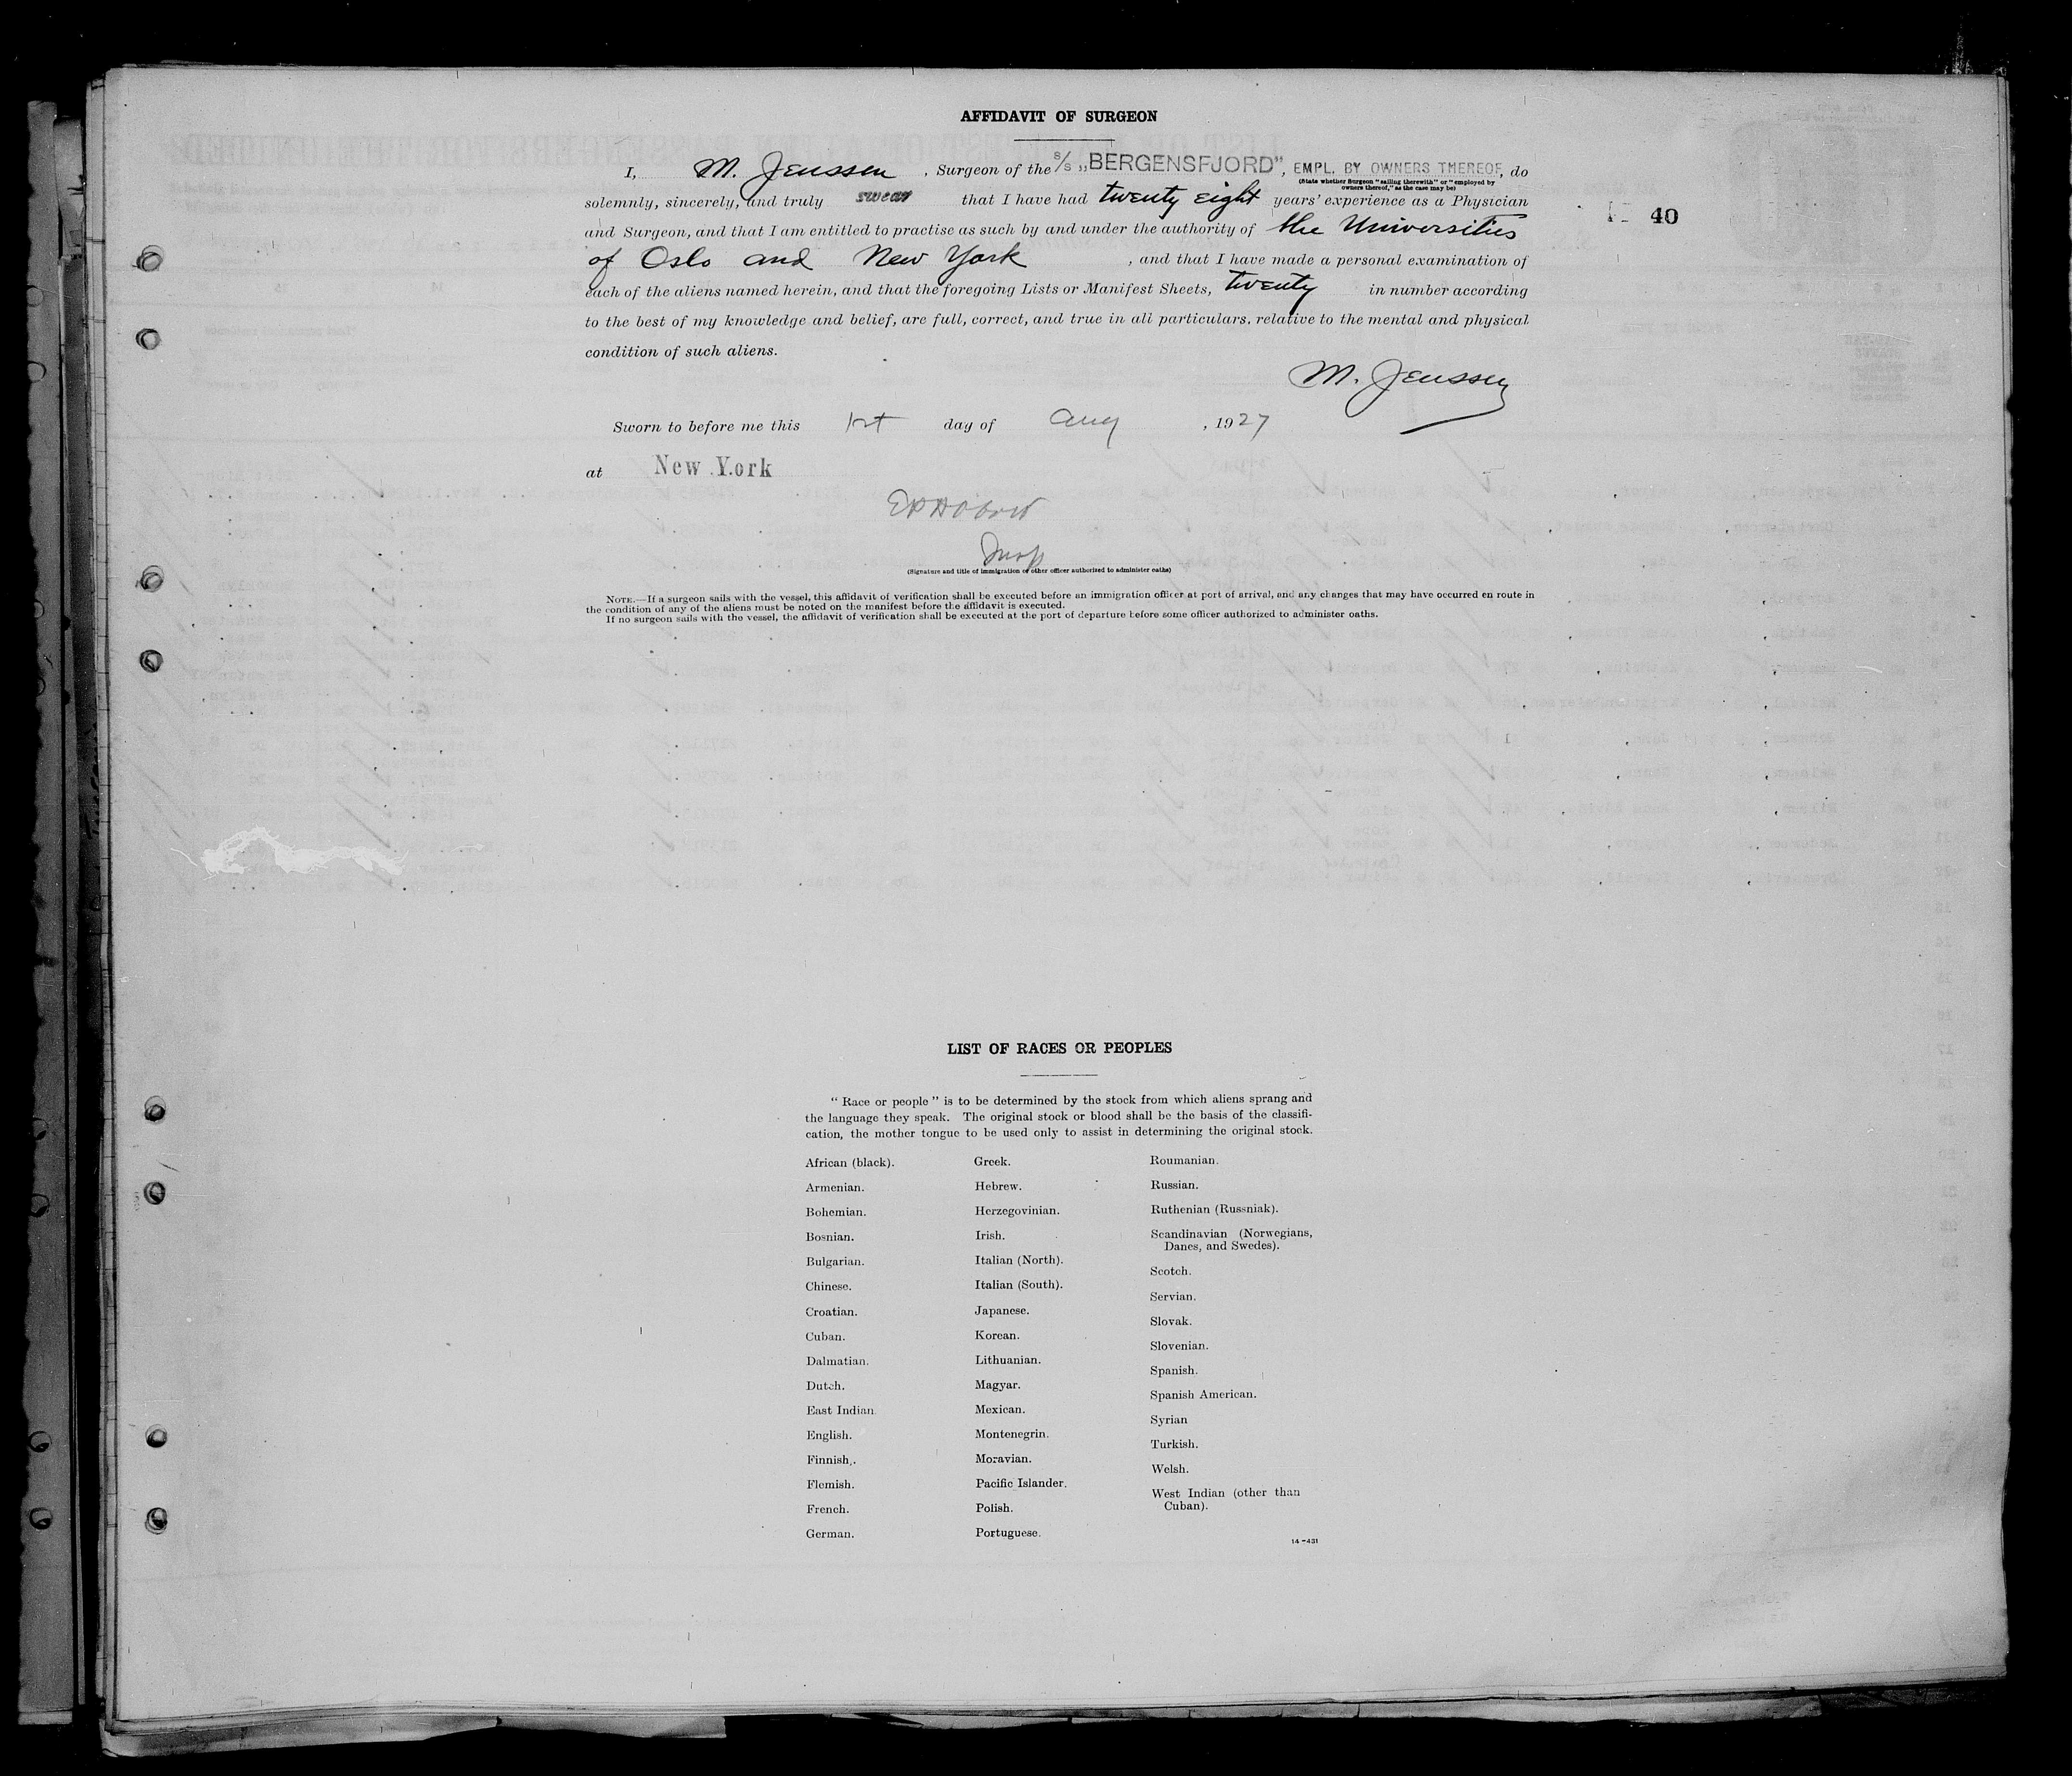 AFFIDAVIT OF SURGEON
I, M. Jenssen , Surgeon of the S/S „BERGENSFJORD", EMPL. BY OWNERS THEREOF, do
(State whether Surgeon "sailing therewith" or "employed by
owners thereof," as the case may be)
solemnly, sincerely, and truly swear that I have had twenty eight years' experience as a Physician
40
and Surgeon, and that I am entitled to practise as such by and under the authority of the Universities
of Oslo and New York , and that I have made a personal examination of
each of the aliens named herein, and that the foregoing Lists or Manifest Sheets, twenty in number according
to the best of my knowledge and belief, are full, correct, and true in all particulars, relative to the mental and physical
condition of such aliens.
M. Jenssen
Sworn to before me this 1st day of Aug , 1927
at New York
Insp
(Signature and title of immigration or other officer authorized to administer oaths)
NOTE.—If a surgeon sails with the vessel, this affidavit of verification shall be executed before an immigration officer at port of arrival, and any changes that may have occurred en route in
the condition of any of the aliens must be noted on the manifest before the affidavit is executed.
If no surgeon sails with the vessel, the affidavit of verification shall be executed at the port of departure before some officer authorized to administer oaths.
LIST OF RACES OR PEOPLES
" Race or people " is to be determined by the stock from which aliens sprang and
the language they speak. The original stock or blood shall be the basis of the classifi-
cation, the mother tongue to be used only to assist in determining the original stock.
African (black).
Armenian.
Bohemian.
Bosnian.
Bulgarian.
Chinese.
Croatian.
Cuban.
Dalmatian.
Dutch.
East Indian.
English.
Finnish.
Flemish.
French.
German.
Greek.
Hebrew.
Herzegovinian.
Irish.
Italian (North).
Italian (South).
Japanese.
Korean.
Lithuanian.
Magyar.
Mexican.
Montenegrin.
Moravian.
Pacific Islander.
Polish.
Portuguese.
Roumanian.
Russian.
Ruthenian (Russniak).
Scandinavian (Norwegians,
Danes, and Swedes).
Scotch.
Servian.
Slovak.
Slovenian.
Spanish.
Spanish American.
Syrian
Turkish.
Welsh.
West Indian (other than
Cuban).
14-431